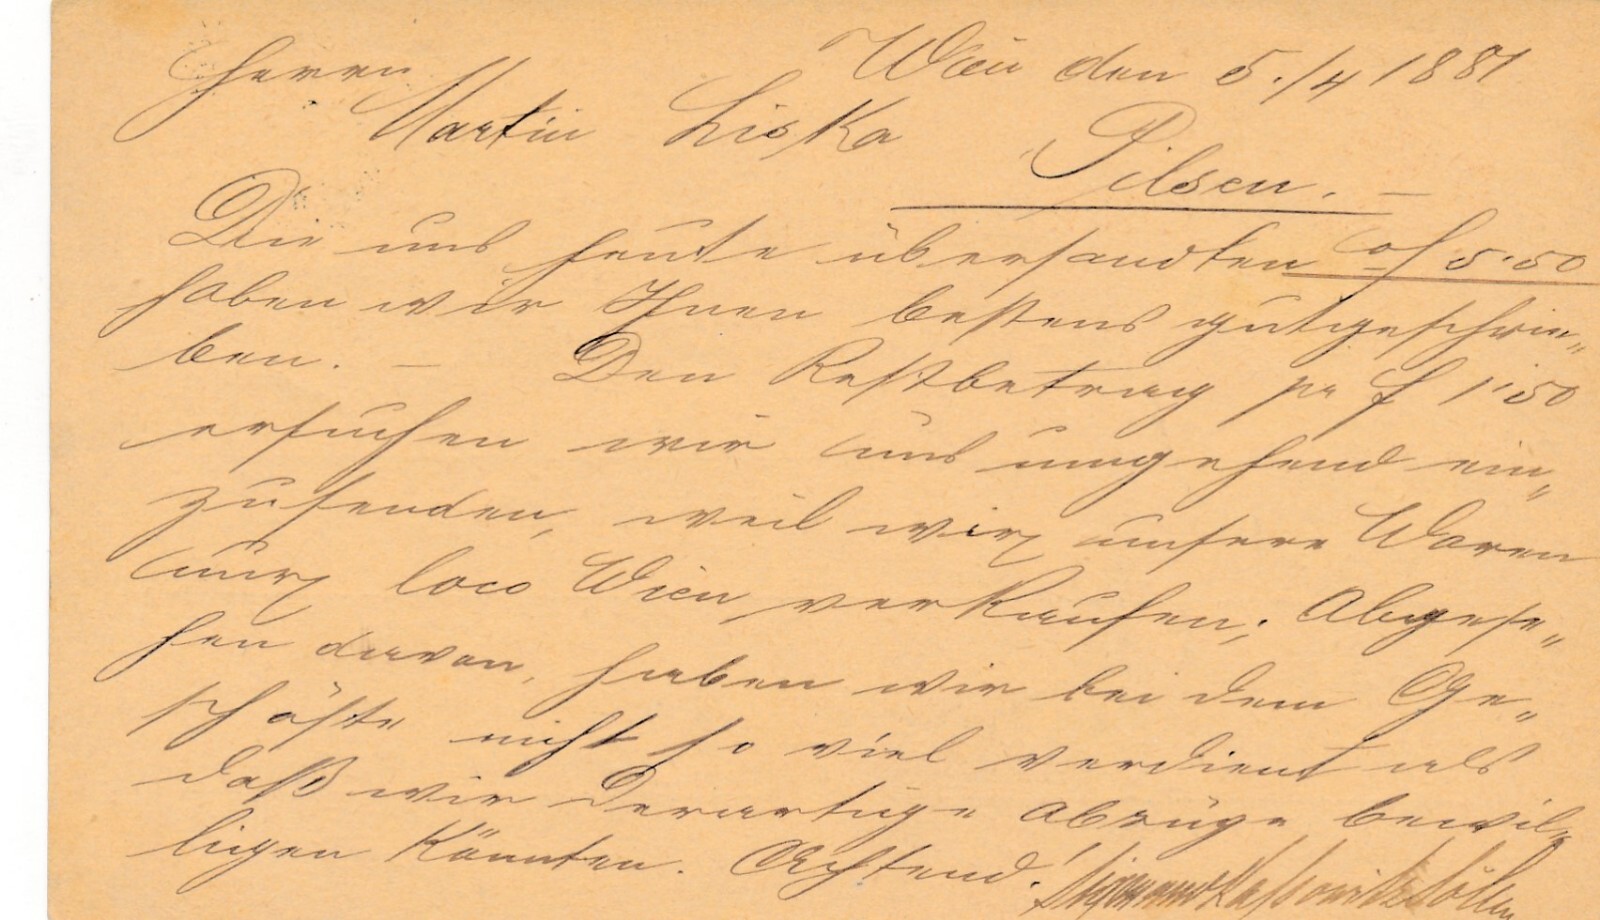 Herrn Wien den 5./4 1881
Martin Liska Pilsen. –
Die uns heute übersandten f 5·50
haben wir Ihnen bestens gutgeschrie„
ben. – Den Restbetrag pr f 1·50
ersuchen wir uns umgehend ein„
zusenden, weil wir unsere Waren
nur loco Wien verkaufen; Abgese„
hen davon, haben wir bei dem Ge„
schäfte nicht so viel verdient als
daß wir derartige Abzüge bewil„
ligen könnten. Achtend!